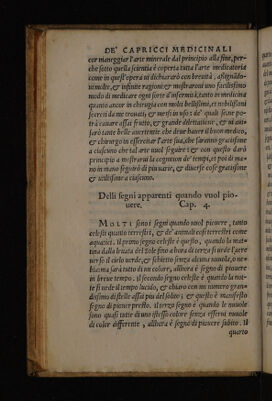 DE' CAPRICCI MEDICINALI
cer maneggiar l'arte minerale dal principio alla fine, per-
che sotto quella scientia è coperta tutta l'arte medicatoria
come in quest'opera ui dichiararò con breuità, assignādo-
ui molte, & infinite ragioni; & mostrarouui uno facilissimo
modo di medicare ogni sorte d'infermità, tanto in medicina
quanto ancor in chirurgia con molti bellissimi, et nobilissimi
secreti da me trouati, & messi in uso: de' quali se ne po-
trà cauare assai frutto, & grande dilettatione, & ui an-
sarò tante belle auertentie che deue hauer il buon medico,
& chirurgo in essercitar l'arte sua, che saranno gratissime
a ciascuno che tal arte uuol seguire: & con questo darò
principio a mostrarui la cognition de' tempi, et poi di ma-
no in mano seguirò di piu uarie, & diuerse cose gratissime
& utilissime a ciascuno.
Delli segni apparenti quando vuol pio-
uere. Cap. 4.
MOLTI sono i segni quando vuol piouere, tanto
celesti quanto terrestri, & de' animali cosi terrestri come
aquatici. Il primo segno celeste è questo, quando la ma-
tina dalla leuata del Sole fino a hora di terza si uede l'aere
uer so il cielo uerde, & subito senza alcuna nuuola, se
ma sarà tutto di un colore, allhora è segno di piouere
in breue tempo. il secondo segno celeste è questo, quando la not-
te si uede il tempo lucido, & chiaro con un numero gran-
dissimo di stelle assai piu del solito; & questo è manifesto
segno di piouer presto. Il terzo segno è quando le nuuole
sono quasi tutte di uno istesso colore senza esserui nuuole
di color differente, allhora è segno di piouere subito. Il
quarto